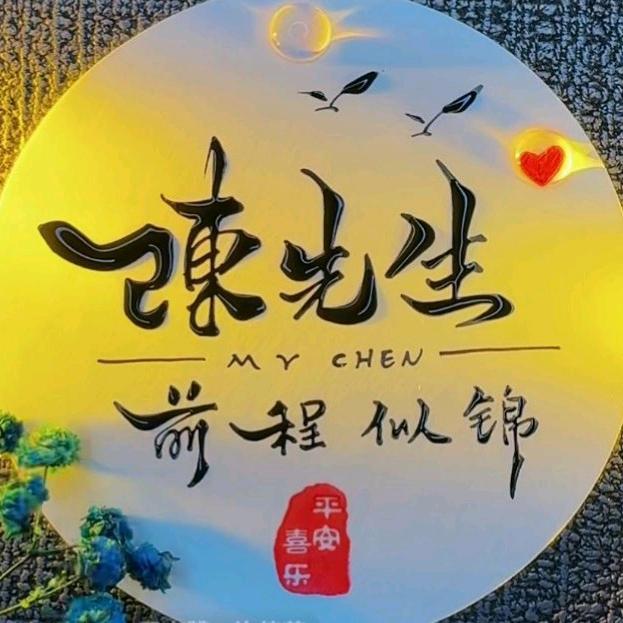 陳先生
MY CHEN
前程似锦
平安
喜乐